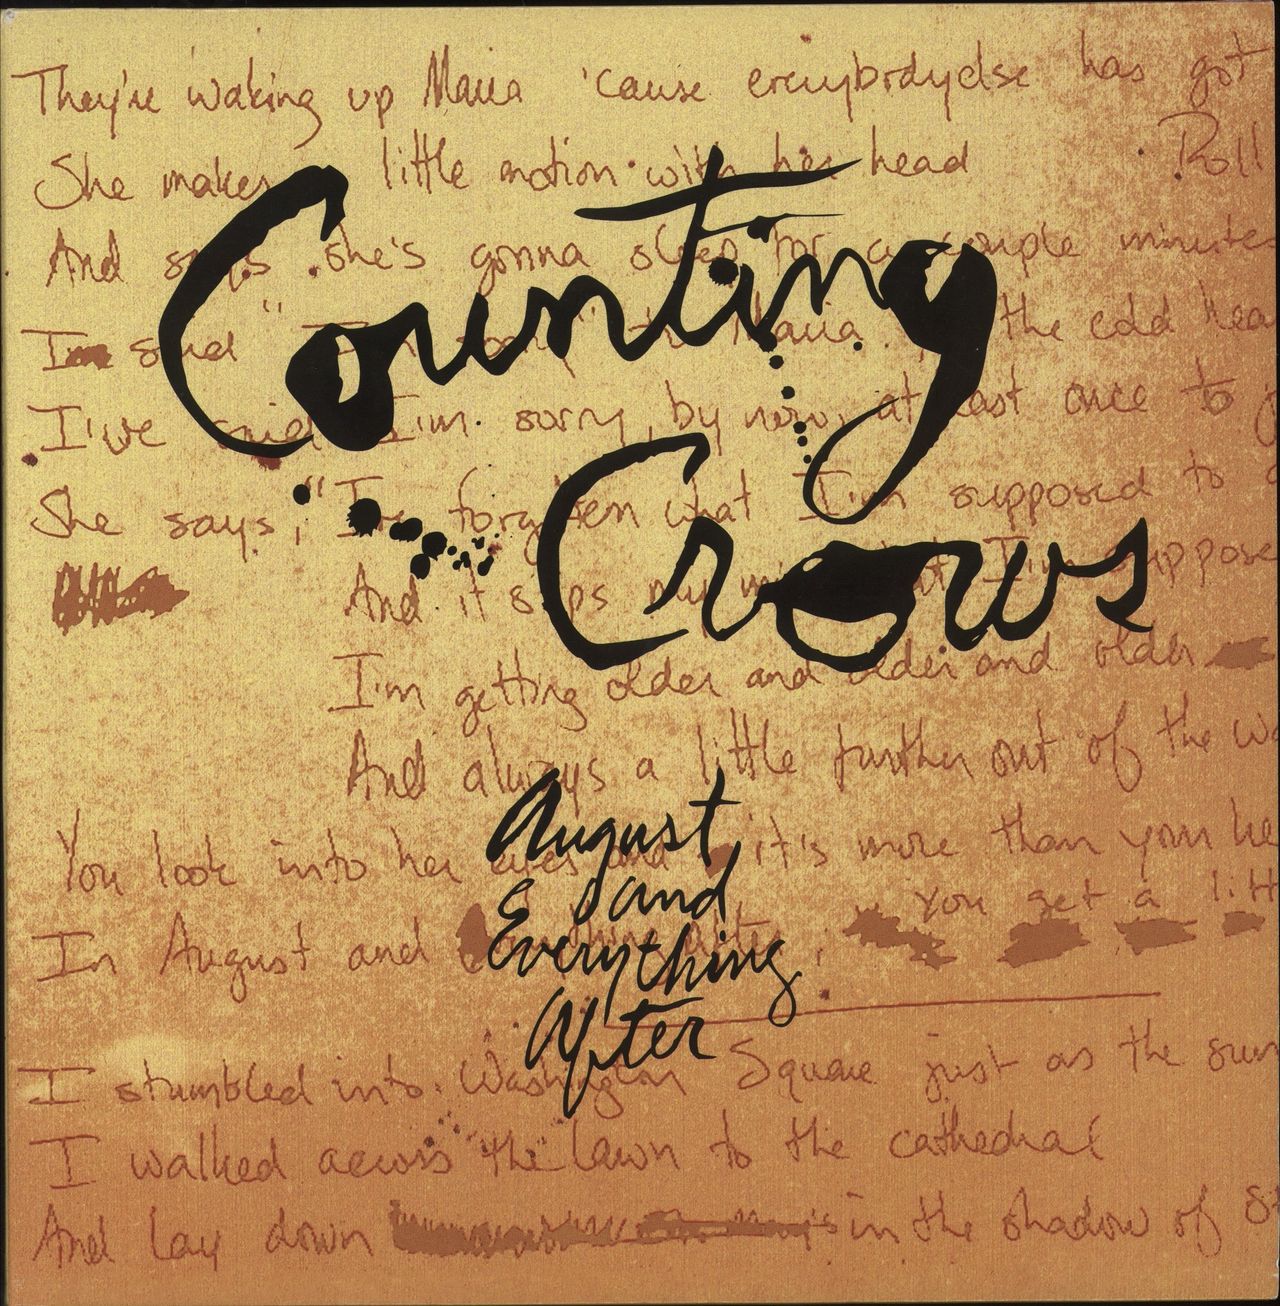 They're waking up Maria 'cause everybody else has got
She makes little motion with her head Roll
And says she's gonna sleep for a couple minutes
Counting
I said "I'm sorry" to Maria, the cold
I've said I'm sorry, by now, at least once to
Crows
She says, "I've forgotten what I'm supposed to
And it slips my I'm
I'm getting older and older and older
And always a little further out of the
August
and
Everything
After
You look into her eyes and it's more than your
You get a
In August and after
I stumbled into Washington Square just as the sun
I walked across the lawn to the cathedral
And lay down in the shadow of